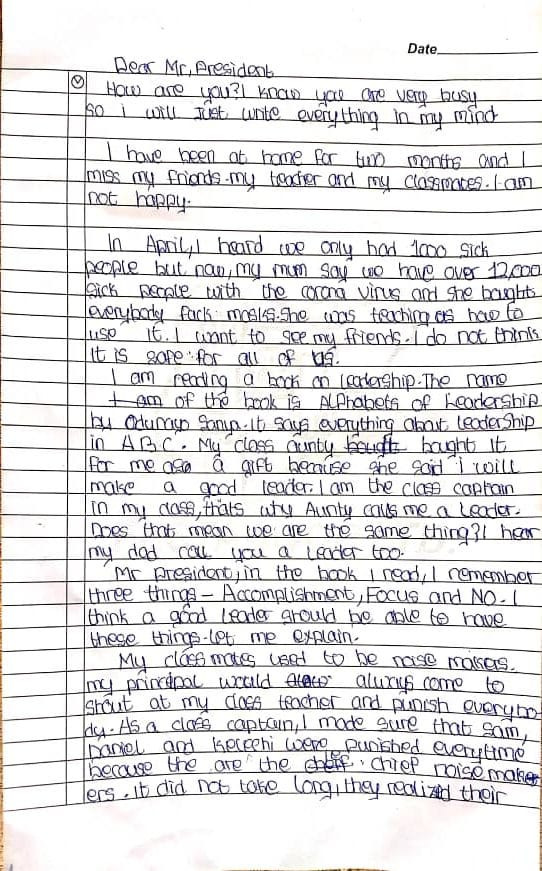 Date
Dear Mr, President
How are you? I know you are very busy
so i will just write everything in my mind
I have been at home for two months and I
miss my friends. my teacher and my classmates. I am
not happy.
In April, I heard we only had 1000 sick
people but nao, my mum say we have over 12,000
sick people with the corona virus and she boughts
everybody face masks. She was teaching us how to
use it. I want to see my friends. I do not think
it is safe for all of us.
I am reading a book on leadership. The name
I am of the book is Alphabets of Leadership
by Odunayo Sanya. It says everything about leadership
in ABC. My class aunty bought bought it
for me as a gift because she said i will
make a good leader. I am the class captain
in my class, thats why Aunty calls me a leader.
Does that mean we are the same thing? I hear
my dad call you a leader too.
Mr president, in the book I read, I remember
three things - Accomplishment, Focus and NO. I
think a good leader should be able to have
these things. let me explain.
My class mates used to be noise makers.
my principal would always come to
shout at my class teacher and punish everybo
dy. As a class captain, I made sure that Sam,
Daniel and Kelechi were punished everytime
because the are the chief noise maker
ers. it did not take long, they realized their